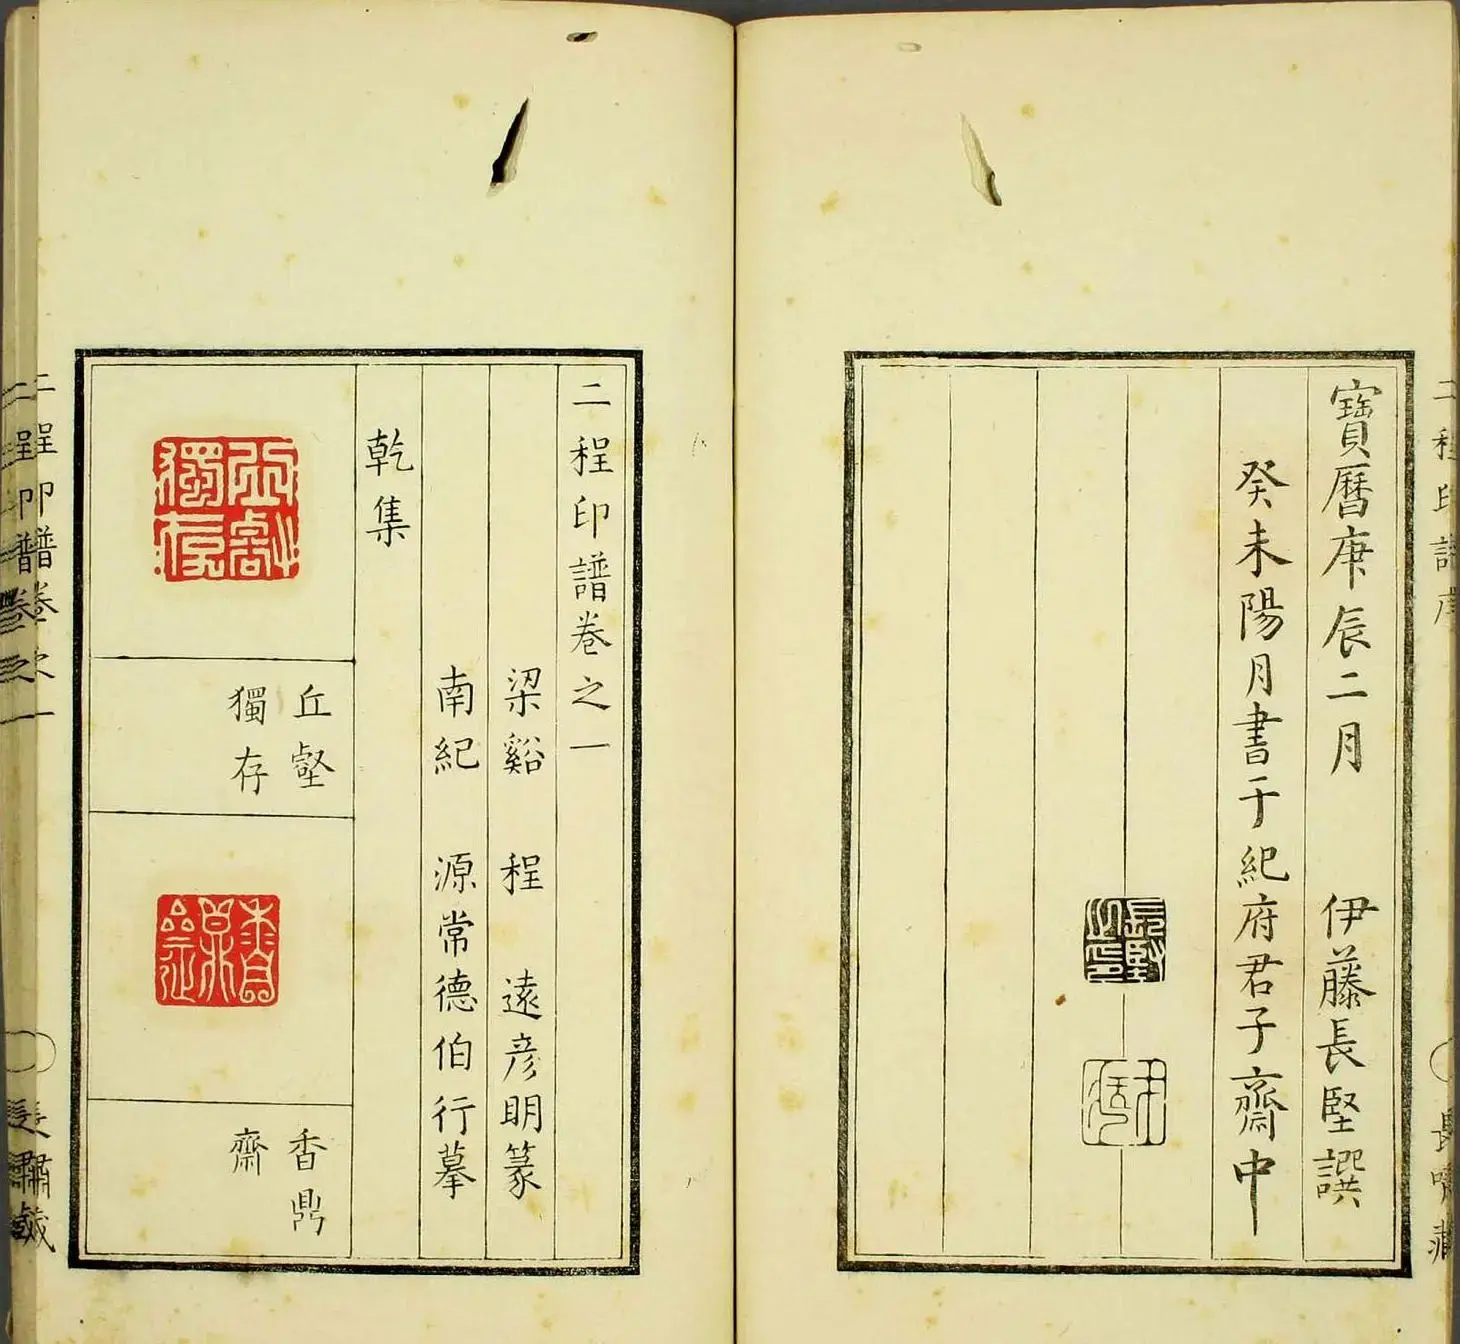 寶曆庚辰二月 伊藤長堅譔
癸未陽月書于紀府君子齋中
長堅之印
二程印譜卷之一
梁谿 程 遠彥明篆
南紀 源常德伯行摹
乾集
丘壑獨存
丘壑
獨存
香鼎齋
香鼎
齋
二程印譜卷之一